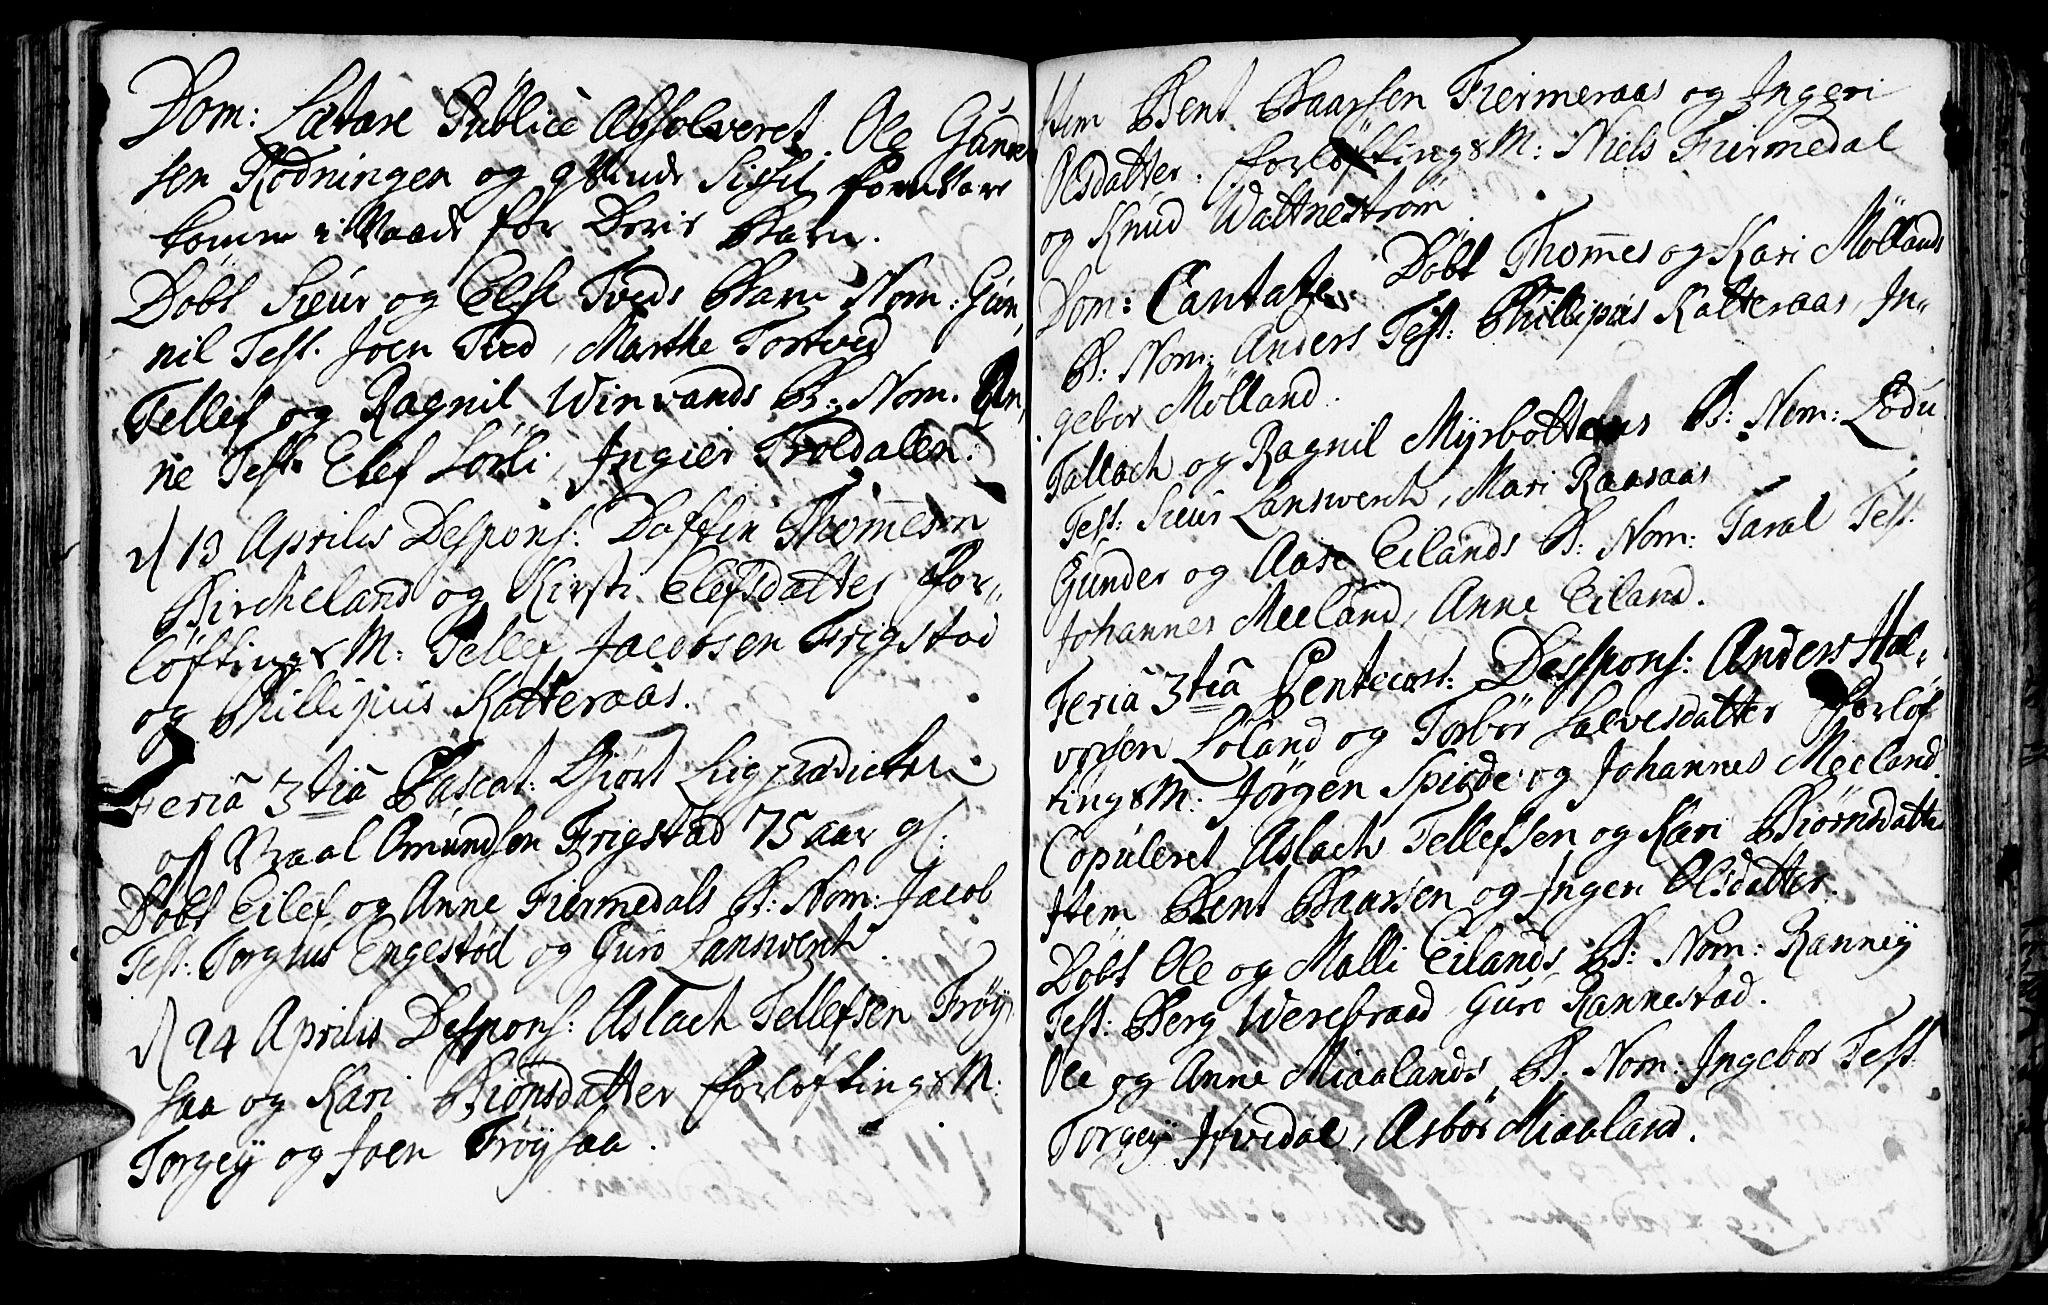 Dom: Lætare Publicè Absolveret Ole Gunder
sen Rødningen og qvinde Sissil
i Vaade for Deris Barn.
Døbt Siur og Else Tveds Barn Nom: Gun„
nil Test. Joen Tved, Marthe Tortved
Tellef og Ragnil Winvands B: Nom. An„
ne Test. Elef Lørli, Ingier Troldalen.
d 13 Aprilis Despons: Daffin Thommesen
Bircheland og Kirsti Elefsdatter for„
løftings M: Tellef Jacobsen Frigstad
og Phillipus Katteraas.
Feriâ 3tiâ Pascat: Giort Liigprædichen
of Kaal Omundsen Frigstad 75 aar gl:
Døbt Eilef og Anne Fiermedals B: Nom: Jacob
Test: Torgius Engestød og Guro Lanswerch.
d 24 Aprilis Despons: Aslach Tellefsen Frøy
saa og Kari Biønsdatter forløftings M:
Torgey og Joen Frøysaa.
Item Bent Baarsen Fiermeraas og Ingeri
Olsdatter. forløftings M: Niels Fiermedal
og Knud Wattnestrøm
Dom: Cantate. Døbt Thommes og Kari Mølands
B: Nom: Anders Test: Phillipus Katteraas, In„
gebor Mølland.
Tallach og Ragnil Myrbottens B: Nom: Lødu
Test: Siur Lanswerch, Mari Raasaas
Gunder og Aase Eilands B: Nom: Taral Test.
Johannes Meeland, Anne Eiland.
Feriâ 3tiâ Pentecost: Despons: Anders Hal„
vorsen Løland og Torbør Salvesdatter forløf
tings M: Jørgen Spigde og Johannes Meeland.
Copuleret Aslach Tellefsen og Kari Biørnsdatter
Item Bent Baarsen og Ingeri Olsdatter.
Døbt Ole og Malli Eilands B: Nom: Ranney
Test: Berg Werebraad Guro Rannestad.
Ole og Anne Miaalands B: Nom: Ingebor Test
Torgey Ifvedal, Asbør Miaaland.